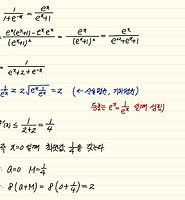 1/(1+e^-x) = e^x/(e^x+1)
= (e^x(e^x+1) - e^x e^x)/(e^x+1)² = e^x/(e^x+1)² = e^x/(e^2x+2e^x+1)
= 1/(e^x+2+e^-x)
1/e^x ≥ 2√(e^x · 1/e^x) = 2 (← 산술평균, 기하평균)
등호는 e^x = 1/e^x 일때 성립)
(x) ≤ 1/(2+2) = 1/4
x=0 일때 최댓값 1/4 을 갖는다
a=0 M=1/4
8(a+M) = 8(0+1/4) = 2